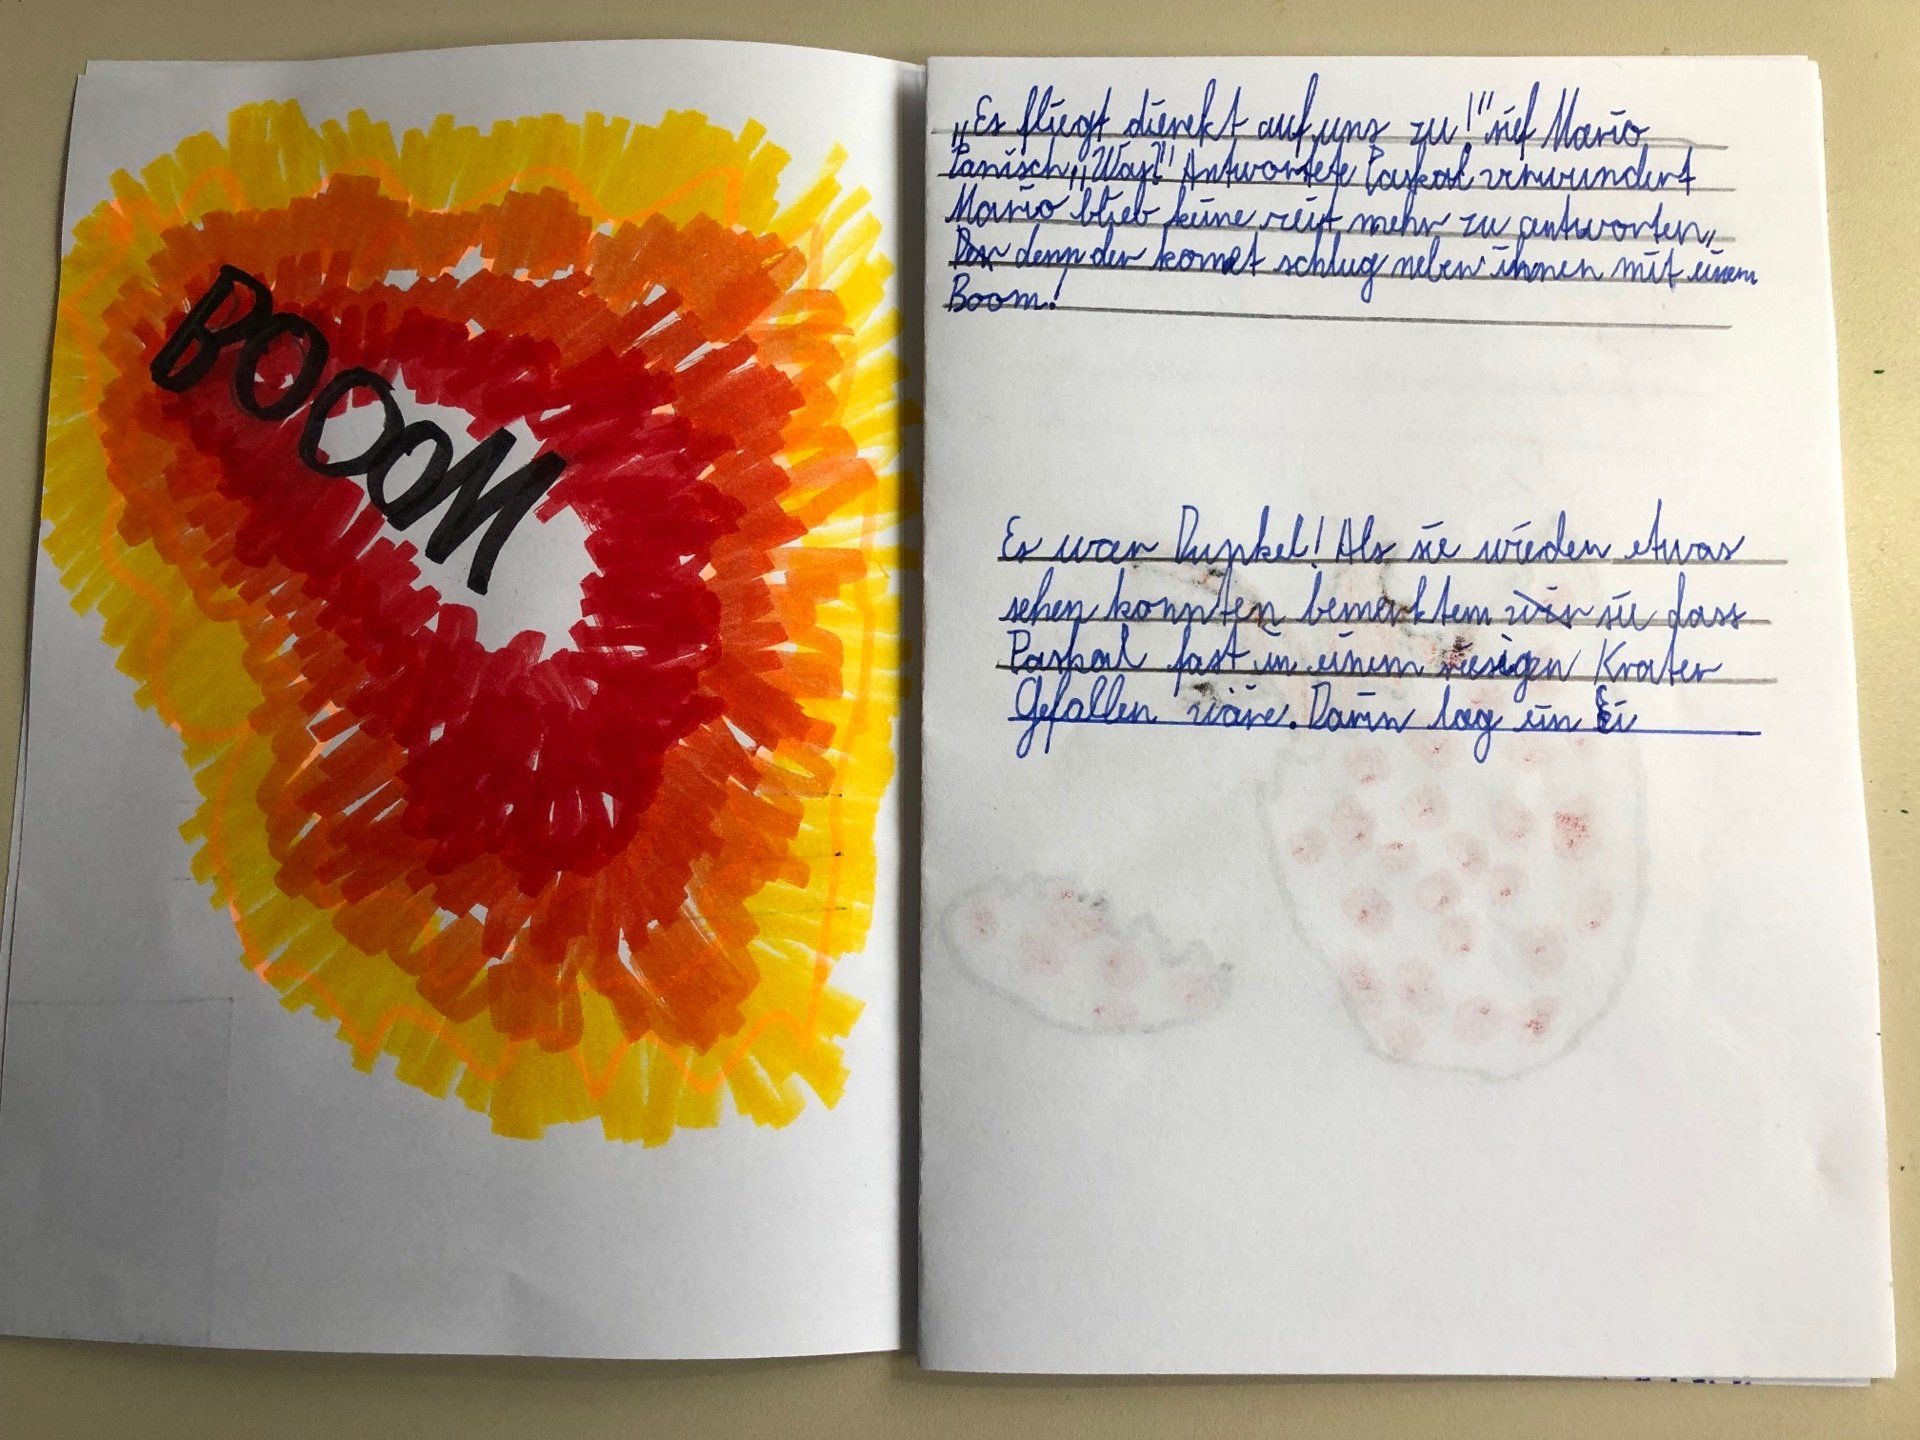 BOOOM
„Es fliegt dierekt auf uns zu!" rief Mario
Panisch „Was?" Antwortete Paskal verwundert
Mario blieb keine zeit mehr zu antworten,
denn der komet schlug neben ihnen mit einem
Boom!
Es war Dunkel! Als sie wieder etwas
sehen konnten bemerktem wir sie dass
Paskal fast in einem riesigen Krater
Gefallen wäre. Darin lag ein Ei